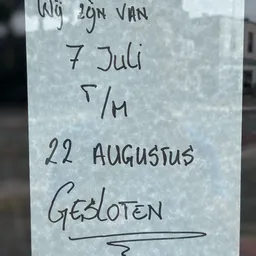 Wij zijn van
7 Juli
T/M
22 AUGUSTUS
GESLOTEN